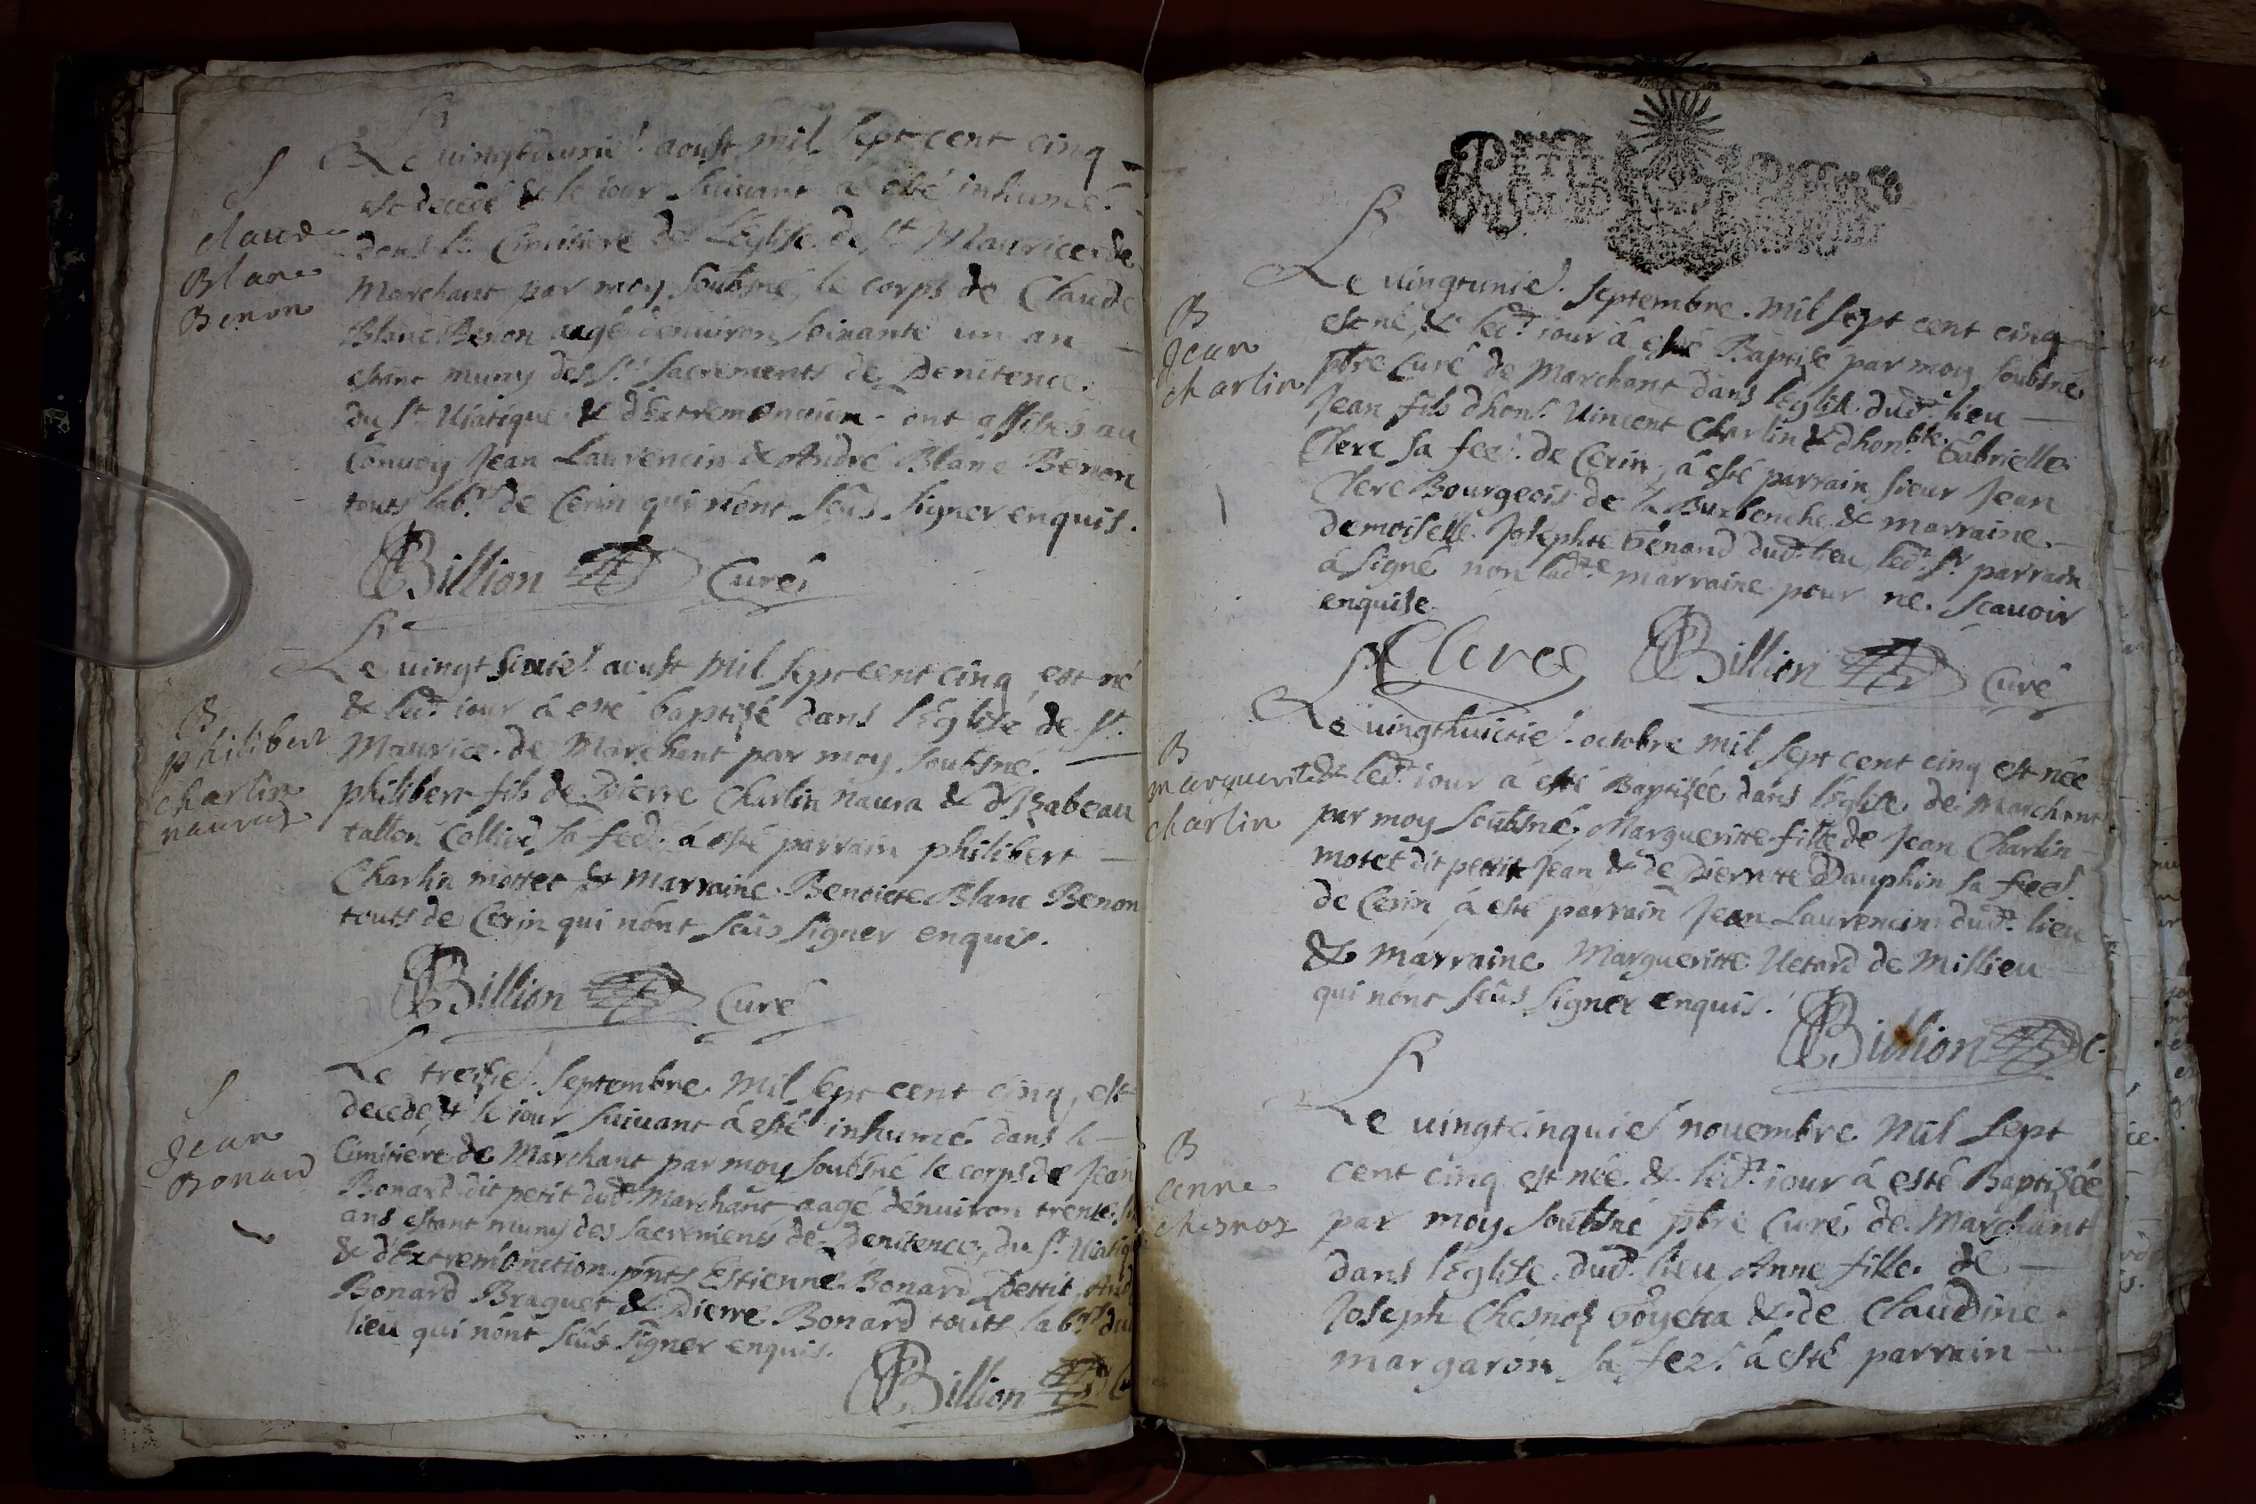 S
Claude
Blanc
Benon
Le vingtdeuxie. aoust mil sept cent cinq
est decede & le iour suivant a esté inhumé
dans le Cimitiere de L'Eglise de St Maurice de
Marchant par moy soubsné le corps de Claude
Blanc Benon aagé denuiron soixante un an
estant muny des Sts sacrements de Penitence.
du St Viatique & d'Extremonction. ont assistés au
Convoy Jean Laurencin & André Blanc Benon
touts labrs de Cerin qui n'ont sçus signer enquis.
Billion Curé
B
philibert
charlin
naura
Le vingt sixie. aoust mil sept cent cinq est né
& led. iour á esté baptizé dans l'Eglise de St.
Maurice de Marchant par moy soubsné.
philibert fils de Pierre Charlin naura & d'Izabeau
tallon Colliod sa fee. á esté parrain philibert
Charlin mottet & marraine Benoicte Blanc Benon
touts de Cerin qui n'ont sçus signer enquis.
Billion Curé
S
Jean
Bonard
Le treizie. Septembre mil sept cent cinq, est
decede & le iour suivant á esté inhumé dans le
Cimitiere de Marchant par moy soubsné le corps de Jean
Bonard dit petit dud. Marchant aagé dénuiron trente
ans estant muny des sacrements de Penitence, du St.
& d'Extremonction pnts Estienne Bonard Pettit,
Bonard Braguet & Pierre Bonard touts labrs
lieu qui n'ont sçus signer enquis.
Billion
B
Jean
charlin
Le vingtunie. Septembre. mil sept cent cinq
est né, & led. iour á esté Baptisé par moy soubsné
pbre Curé de Marchant dans l'Eglise dud. lieu
Jean fils d'hon. Vincent Charlin & d'hon.ble Gabrielle
Clerc sa fee. de Cerin, á esté parrain, sieur Jean
Clerc Bourgeois de la Burbenche & marraine
demoiselle Josephte Génand dud. lieu, led. Sr. parrain
á signé non lad.te marraine pour ne. scauoir
enquise.
Clerc Billion Curé
B
marguerite
charlin
Le vingthuictie. octobre mil sept cent cinq est née
& led. iour á esté Baptizée dans l'Eglise de Marchant
par moy soubsné. Margueritte fille de Jean Charlin
motet dit pettit Jean & de Pierrete Dauphin sa fee.
de Cerin á esté parrain Jean Laurencin dud. lieu
& marraine Margueritte Vetard de Millieu
qui n'ont sçus signer enquis.
Billion C.
B
anne
chesnoz
Le vingtcinquie. novembre mil sept
cent cinq est née & led. iour á esté Baptizée
par moy soubsné pbre Curé de Marchant
dans l'Eglise dud. lieu Anne fille de
Joseph Chesnoz Goyetta & de Claudine
margaron sa fee. á esté parrain